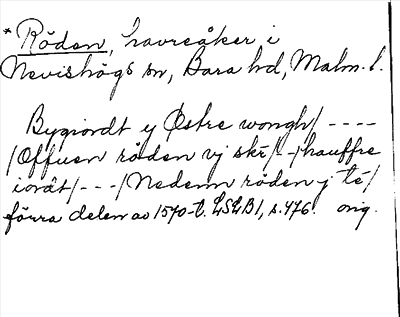 * Röden, havreåker i
Nevishögs sn, Bara hd, Malm. l.
Bygiordt ij Østre wongh/ ----
/Offuen röden vj skr̄/--/hauffre
iordt/---/Nedenn röden j tē/
förra delen av 1570-t. LSLB1, s.476. orig.